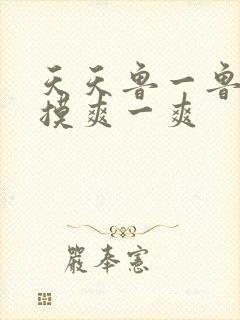 天天鲁一鲁
摸爽一爽
嚴奉憲